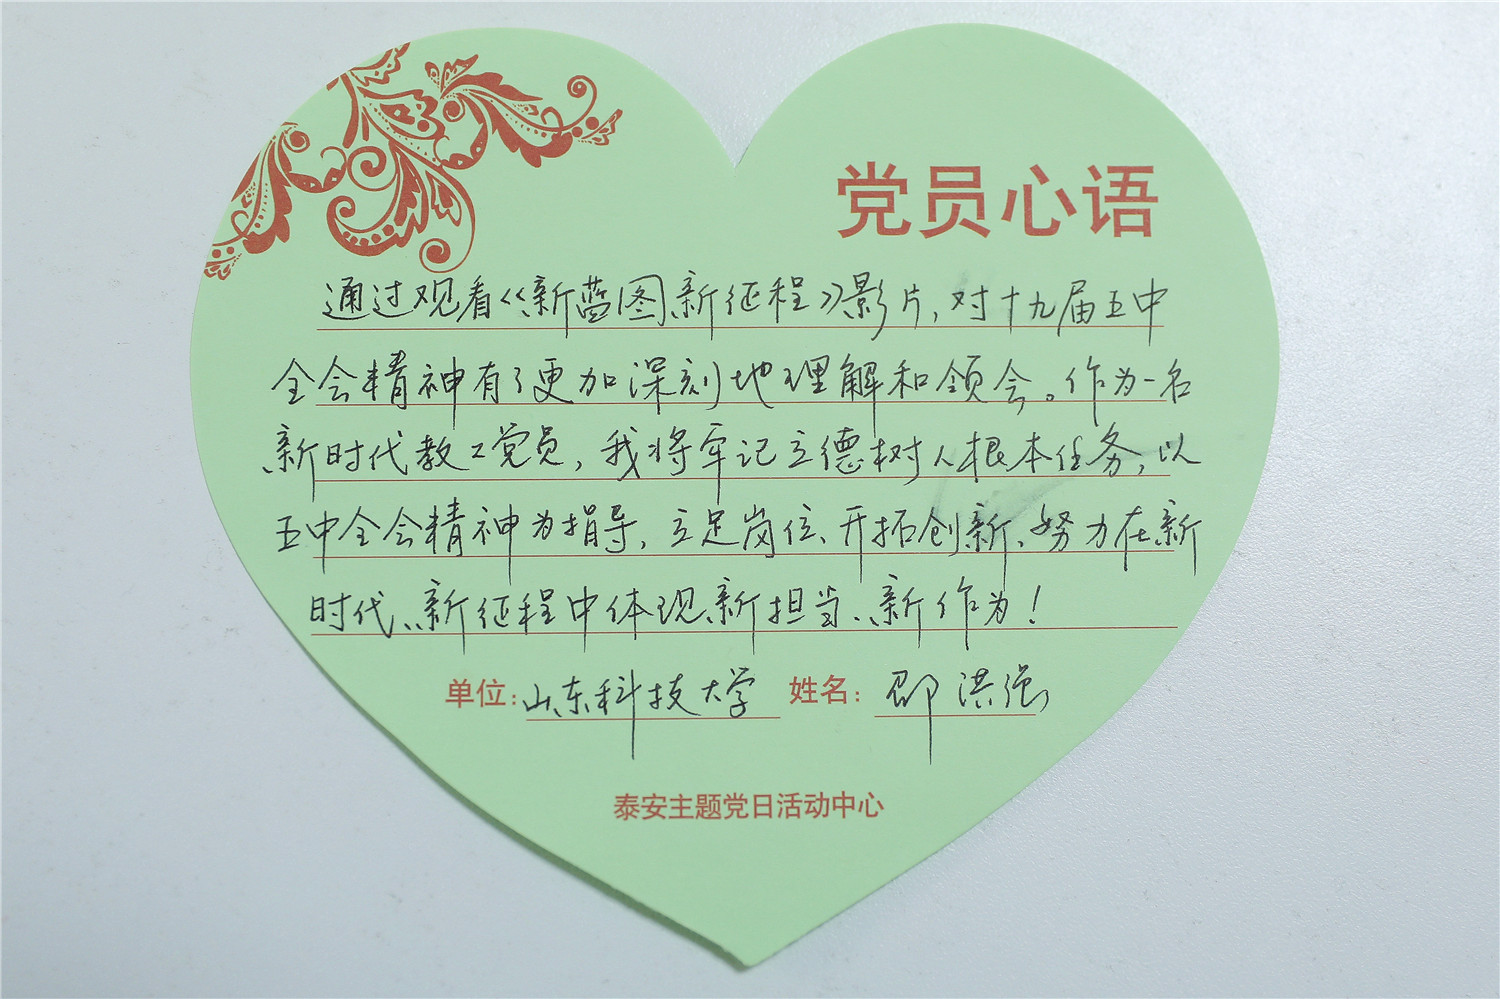 党员心语
通过观看《新蓝图新征程》影片,对十九届五中
全会精神有了更加深刻地理解和领会。作为一名
新时代教工党员,我将牢记立德树人根本任务,以
五中全会精神为指导,立足岗位、开拓创新、努力在新
时代、新征程中体现新担当、新作为!
单位:山东科技大学 姓名: 洪强
泰安主题党日活动中心